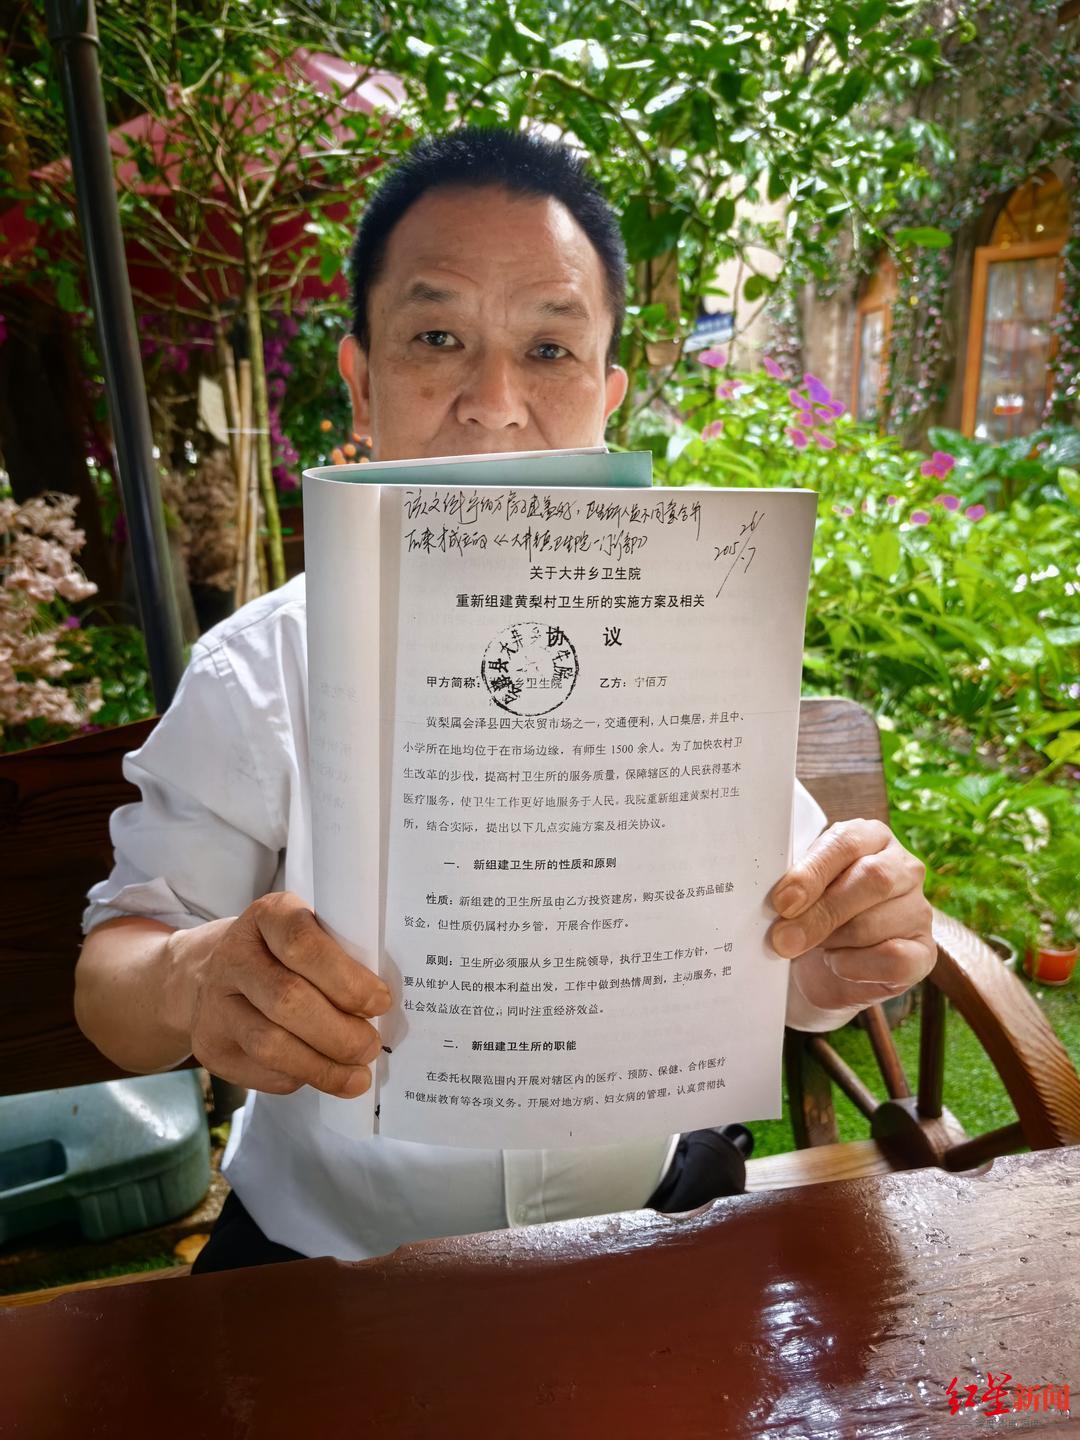 该文经宁佰万房子建盖好，卫生所人员不同意合并
后来才成立的《大井镇卫生院一门诊部》
2015.7
26
关于大井乡卫生院
重新组建黄梨村卫生所的实施方案及相关
协 议
会泽县大井乡卫生院
甲方简称：大井乡卫生院 乙方：宁佰万
黄梨属会泽县四大农贸市场之一，交通便利，人口集居，并且中、
小学所在地均位于在市场边缘，有师生 1500 余人。为了加快农村卫
生改革的步伐，提高村卫生所的服务质量，保障辖区的人民获得基本
医疗服务，使卫生工作更好地服务于人民。我院重新组建黄梨村卫生
所，结合实际，提出以下几点实施方案及相关协议。
一． 新组建卫生所的性质和原则
性质：新组建的卫生所虽由乙方投资建房，购买设备及药品铺垫
资金，但性质仍属村办乡管，开展合作医疗。
原则：卫生所必须服从乡卫生院领导，执行卫生工作方针，一切
要从维护人民的根本利益出发，工作中做到热情周到，主动服务，把
社会效益放在首位，同时注重经济效益。
二． 新组建卫生所的职能
在委托权限范围内开展对辖区内的医疗、预防、保健、合作医疗
和健康教育等各项义务。开展对地方病、妇女病的管理，认真贯彻执
1
红星新闻